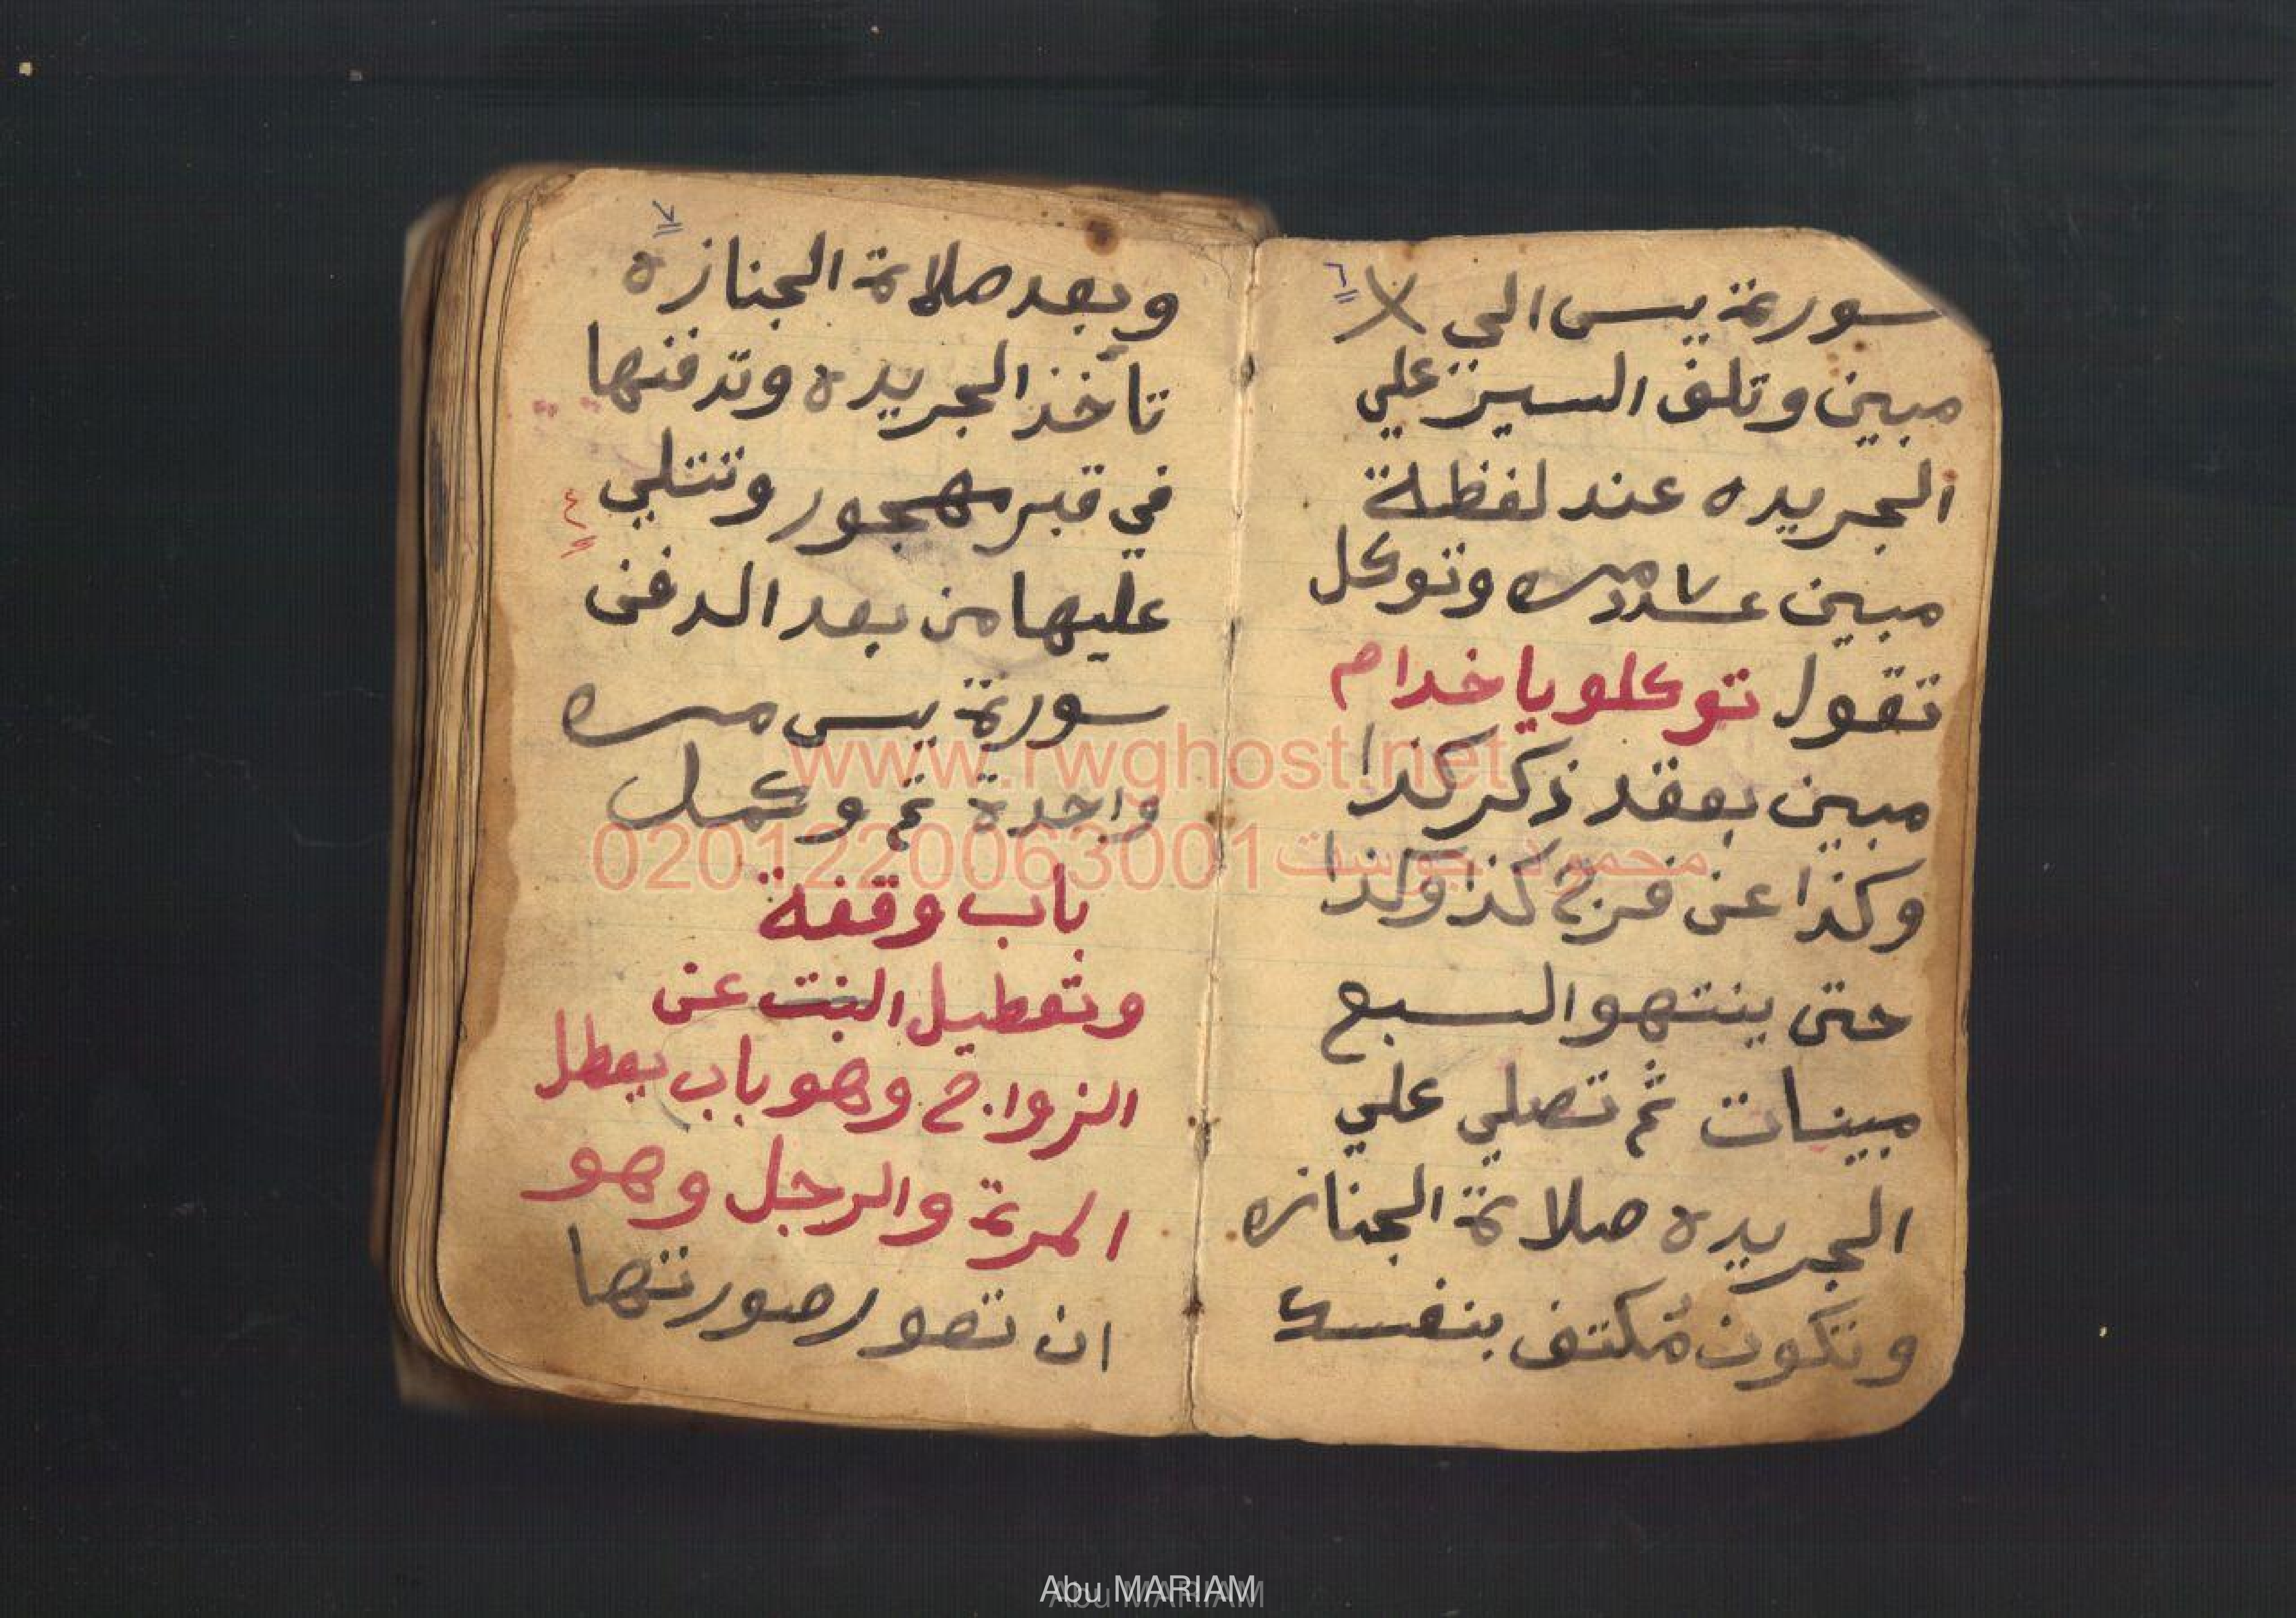 ٦
سورة يس الي
مبين وتلف السير علي
الجريده عند لفظة
مبين عدد مره وتوكل
تقول توكلو يا خدام
مبين بعقد ذكر كذا
وكذا عن فرج كذا وكذا
حتى ينتهو السبع
مبينات ثم تصلي علي
الجريده صلاة الجنازه
وتكون مُكتف بنفسك
٧
وبعد صلاة الجنازه
تأخذ الجريده وتدفنها
في قبر مهجور وتتلي
٤
عليها من بعد الدفن
سورة يس مره
واحدة تم وكمل
باب وقفة
وتعطيل البنت عن
الزواج وهو باب يعطل
المرة والرجل وهو
ان تصور صورتها
www.rwghost.net
محمود جوست 0201220063001
Abu MARIAM